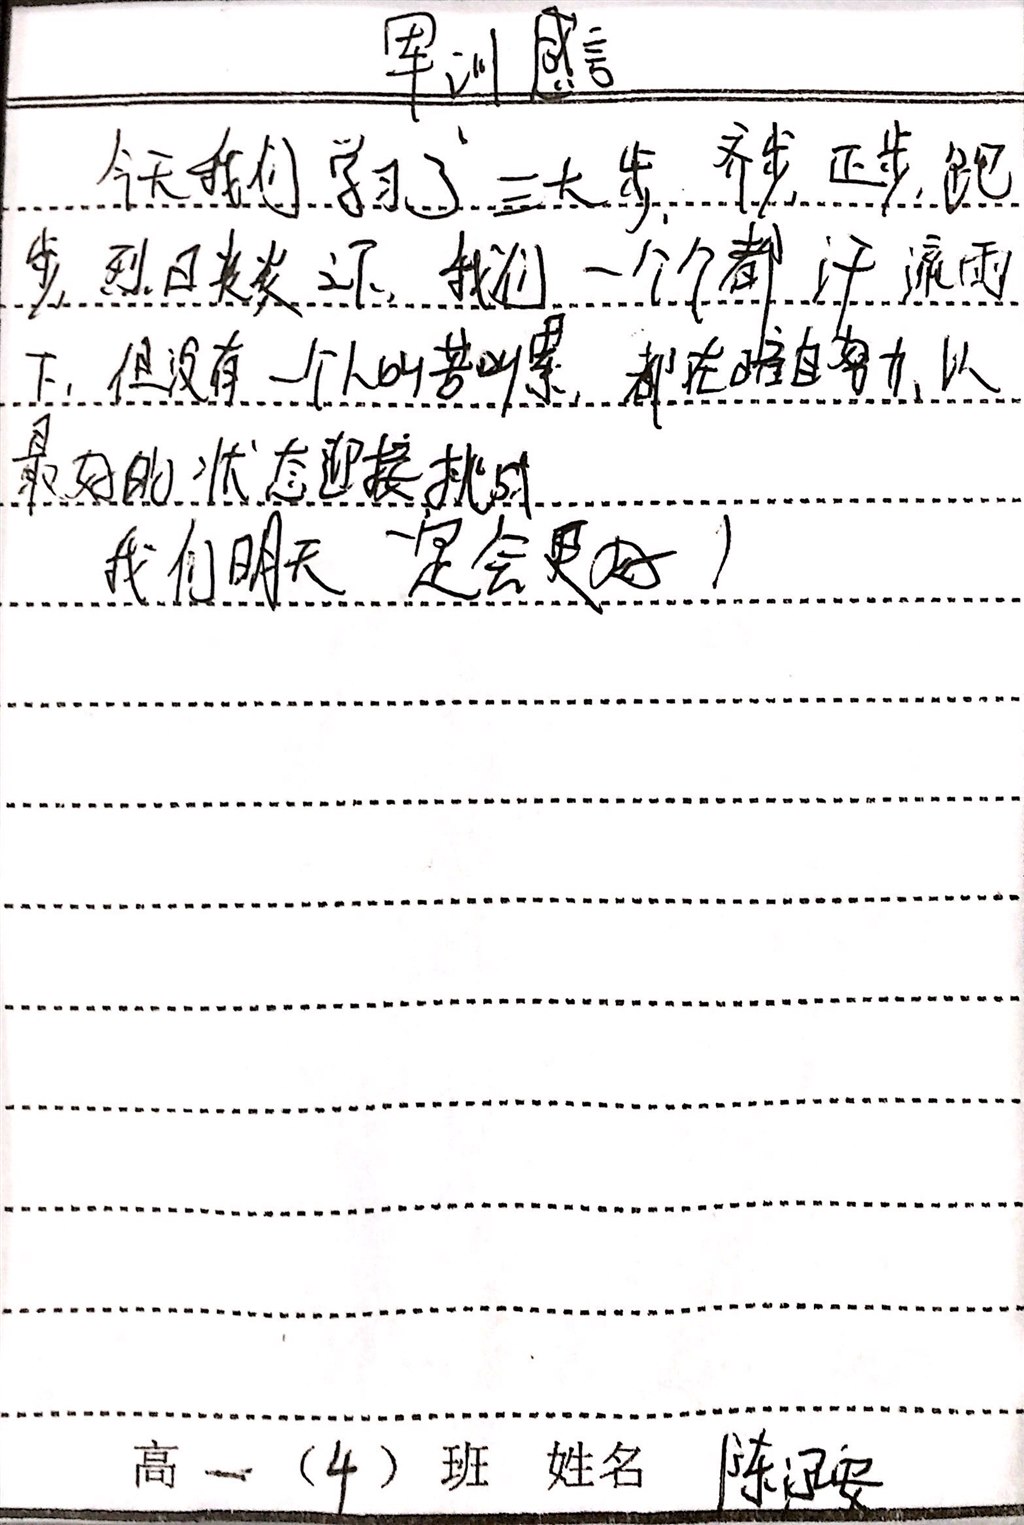 军训感言
今天我们学习了三大步,齐步,正步,跑
步,烈日炎炎之下,我们一个个都汗流雨
下,但没有一个人叫苦叫累,都在暗自努力,以
最好的状态迎接挑战
我们明天一定会更好!
高一(4)班 姓名 陈 安